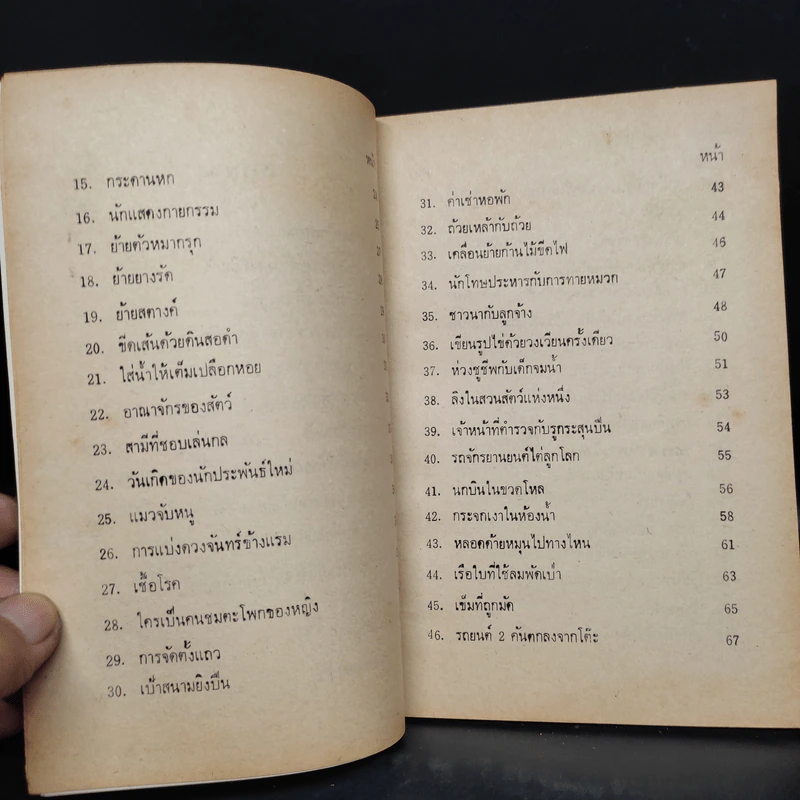 15. กระดานหก
16. นักแสดงกายกรรม
17. ย้ายตัวหมากรุก
18. ย้ายยางรัด
19. ย้ายสตางค์
20. ขีดเส้นด้วยดินสอดำ
21. ใส่น้ำให้เต็มเปลือกหอย
22. อาณาจักรของสัตว์
23. สามีที่ชอบเล่นกล
24. วันเกิดของนักประพันธ์ใหม่
25. แมวจับหนู
26. การแบ่งดวงจันทร์ข้างแรม
27. เชื้อโรค
28. ใครเป็นคนชมตะโพกของหญิง
29. การจัดตั้งแถว
30. เป้าสนามยิงปืน
หน้า
31. ค่าเช่าหอพัก 43
32. ถ้วยเหล้ากับถ้วย 44
33. เคลื่อนย้ายก้านไม้ขีดไฟ 46
34. นักโทษประหารกับการทายหมวก 47
35. ชาวนากับลูกจ้าง 48
36. เขียนรูปไข่ด้วยวงเวียนครั้งเดียว 50
37. ห่วงชูชีพกับเด็กจมน้ำ 51
38. ลิงในสวนสัตว์แห่งหนึ่ง 53
39. เจ้าหน้าที่ตำรวจกับรูกระสุนปืน 54
40. รถจักรยานยนต์ไต่ลูกโลก 55
41. นกบินในขวดโหล 56
42. กระจกเงาในห้องน้ำ 58
43. หลอดด้ายหมุนไปทางไหน 61
44. เรือใบที่ใช้ลมพัดเป่า 63
45. เข็มที่ถูกมัด 65
46. รถยนต์ 2 คันตกลงจากโต๊ะ 67